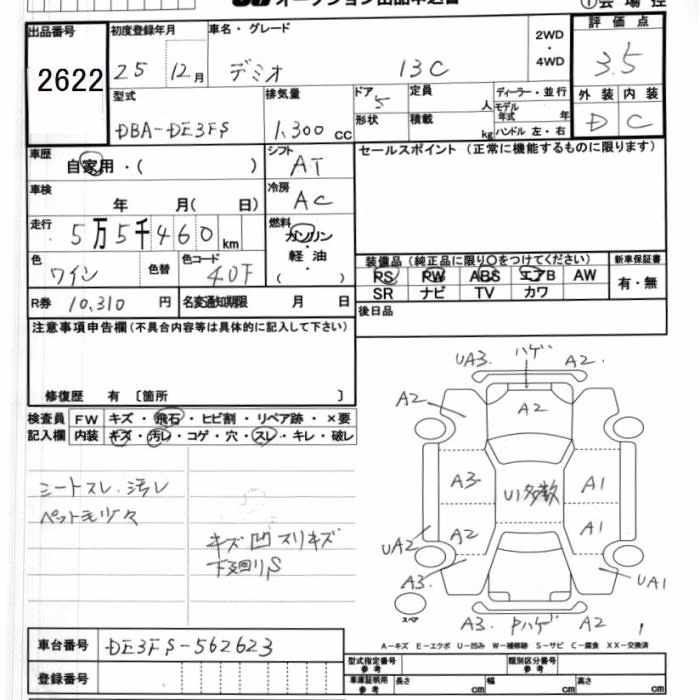 オークション出品申込書
①会場控
出品番号 2622
初度登録年月 25 12月
車名・グレード デミオ 13C
2WD・4WD
評価点 3.5
型式 DBA-DE3FS
排気量 1,300 cc
ドア 5
形状
定員 人
積載 kg
ディーラー・並行
モデル年式 年
ハンドル 左・右
外装 D 内装 C
車歴 自家用・( )
シフト AT
セールスポイント (正常に機能するものに限ります)
車検 年 月( 日)
冷房 AC
走行 5万5千460km
燃料 ガソリン・軽・油 ( )
色 ワイン 色替 色コード 40F
装備品 (純正品に限り○をつけてください) 新車保証書
PS PW ABS エアB AW 有・無
SR ナビ TV カワ
R券 10,310 円 名変通知期限 月 日
後日品
注意事項申告欄 (不具合内容等は具体的に記入して下さい)
修復歴 有 〔箇所 〕
検査員記入欄
FW キズ・飛石・ヒビ割・リペア跡・×要
内装 キズ・汚レ・コゲ・穴・スレ・キレ・破レ
シートスレ.汚レ
ペット毛少々
キズ凹スリキズ
下廻りS
UA3. ハゲ A2.
A2 A2
A3 U1多数 A1
A2 A1
UA2 A3. UA1
スペア
A3. Pハゲ A2
A-キズ E-エクボ U-凹み W-補修跡 S-サビ C-腐食 XX-交換済
車台番号 DE3FS-562623
登録番号
型式指定番号 参考 類別区分番号 参考
車庫証明用 参考 長さ cm 幅 cm 高さ cm